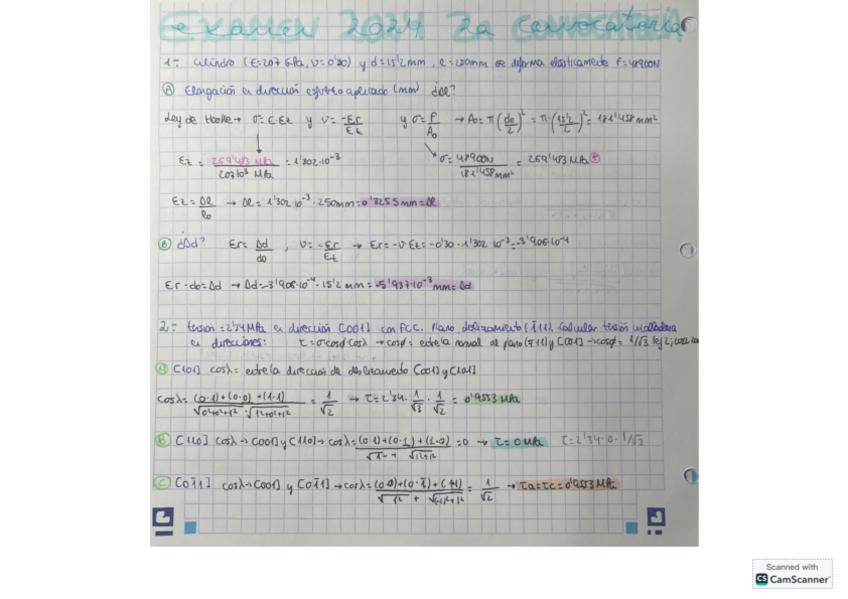 Examen 2024 2a convocatoria
1:- Cilindro (E=207 GPa, ν=0'30) y d=15'2mm, l=250mm se deforma elásticamente F=48900N
A) Elongación en dirección esfuerzo aplicado (mm) ¿Δl?
Ley de Hooke → σ=E·εz y ν=-εr/εz y σ=F/A₀ → A₀=π(d₀/2)²=π·(15'2/2)²=181'458mm²
εz=269'483 MPa/207·10³ MPa=1'302·10⁻³ σ=48900N/181'458mm²=269'483 MPa
εz=Δl/l₀ → Δl=1'302·10⁻³·250mm=0'3255mm=Δl
B) ¿Δd? εr=Δd/d₀, ν=-εr/εz → εr=-ν·εz=-0'30·1'302·10⁻³=-3'906·10⁻⁴
εr·d₀=Δd → Δd=-3'906·10⁻⁴·15'2mm=-5'937·10⁻³mm=Δd
2:- tensión=2'34MPa en dirección [001] con FCC. Plano deslizamiento (1̄11). Calcular tensión cizalladura
en direcciones: τ=σcosφcosλ → cosφ= entre la normal al plano (1̄11) y [001] → cosφ=1/√3
A) [101] cosλ= entre la dirección de deslizamiento [001] y [101]
cosλ=(0·1)+(0·0)+(1·1)/√0²+0²+1²·√1²+0²+1²=1/√2 → τ=2'34·1/√3·1/√2=0'9553 MPa
B) [110] cosλ→[001] y [110]→cosλ=(0·1)+(0·1)+(1·0)/√1²+√1²+1²=0 → τ=0MPa τ=2'34·0·1/√3
C) [01̄1] cosλ→[001] y [01̄1]→cosλ=(0·0)+(0·1̄)+(1·1)/√1²+√(-1)²+1²=1/√2 → τa=τc=0'9553 MPa
Scanned with
CS CamScanner